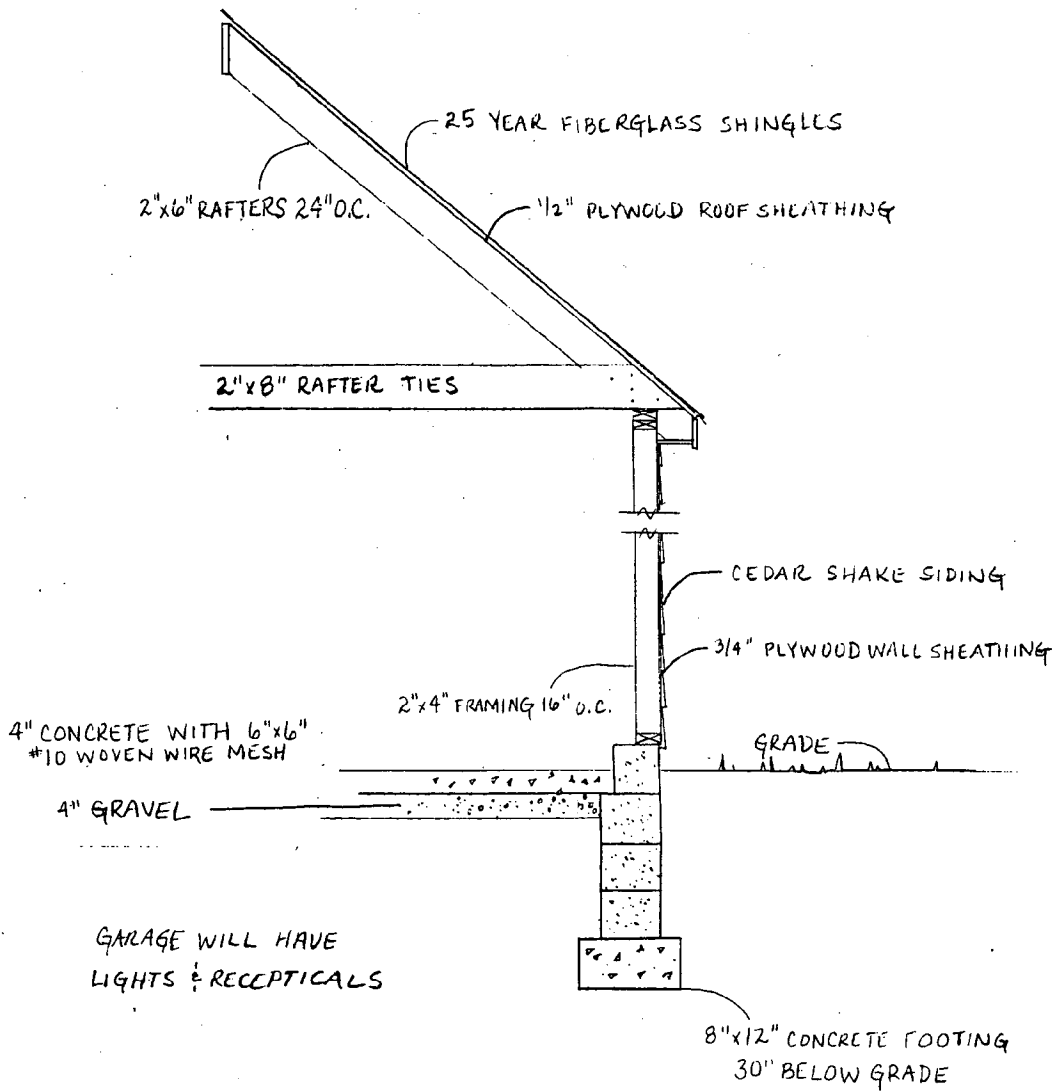 25 YEAR FIBERGLASS SHINGLES
2"x6" RAFTERS 24" O.C.
1/2" PLYWOOD ROOF SHEATHING
2"x8" RAFTER TIES
CEDAR SHAKE SIDING
3/4" PLYWOOD WALL SHEATHING
2"x4" FRAMING 16" O.C.
4" CONCRETE WITH 6"x6"
#10 WOVEN WIRE MESH
GRADE
4" GRAVEL
GARAGE WILL HAVE
LIGHTS & RECEPTICALS
8"x12" CONCRETE FOOTING
30" BELOW GRADE